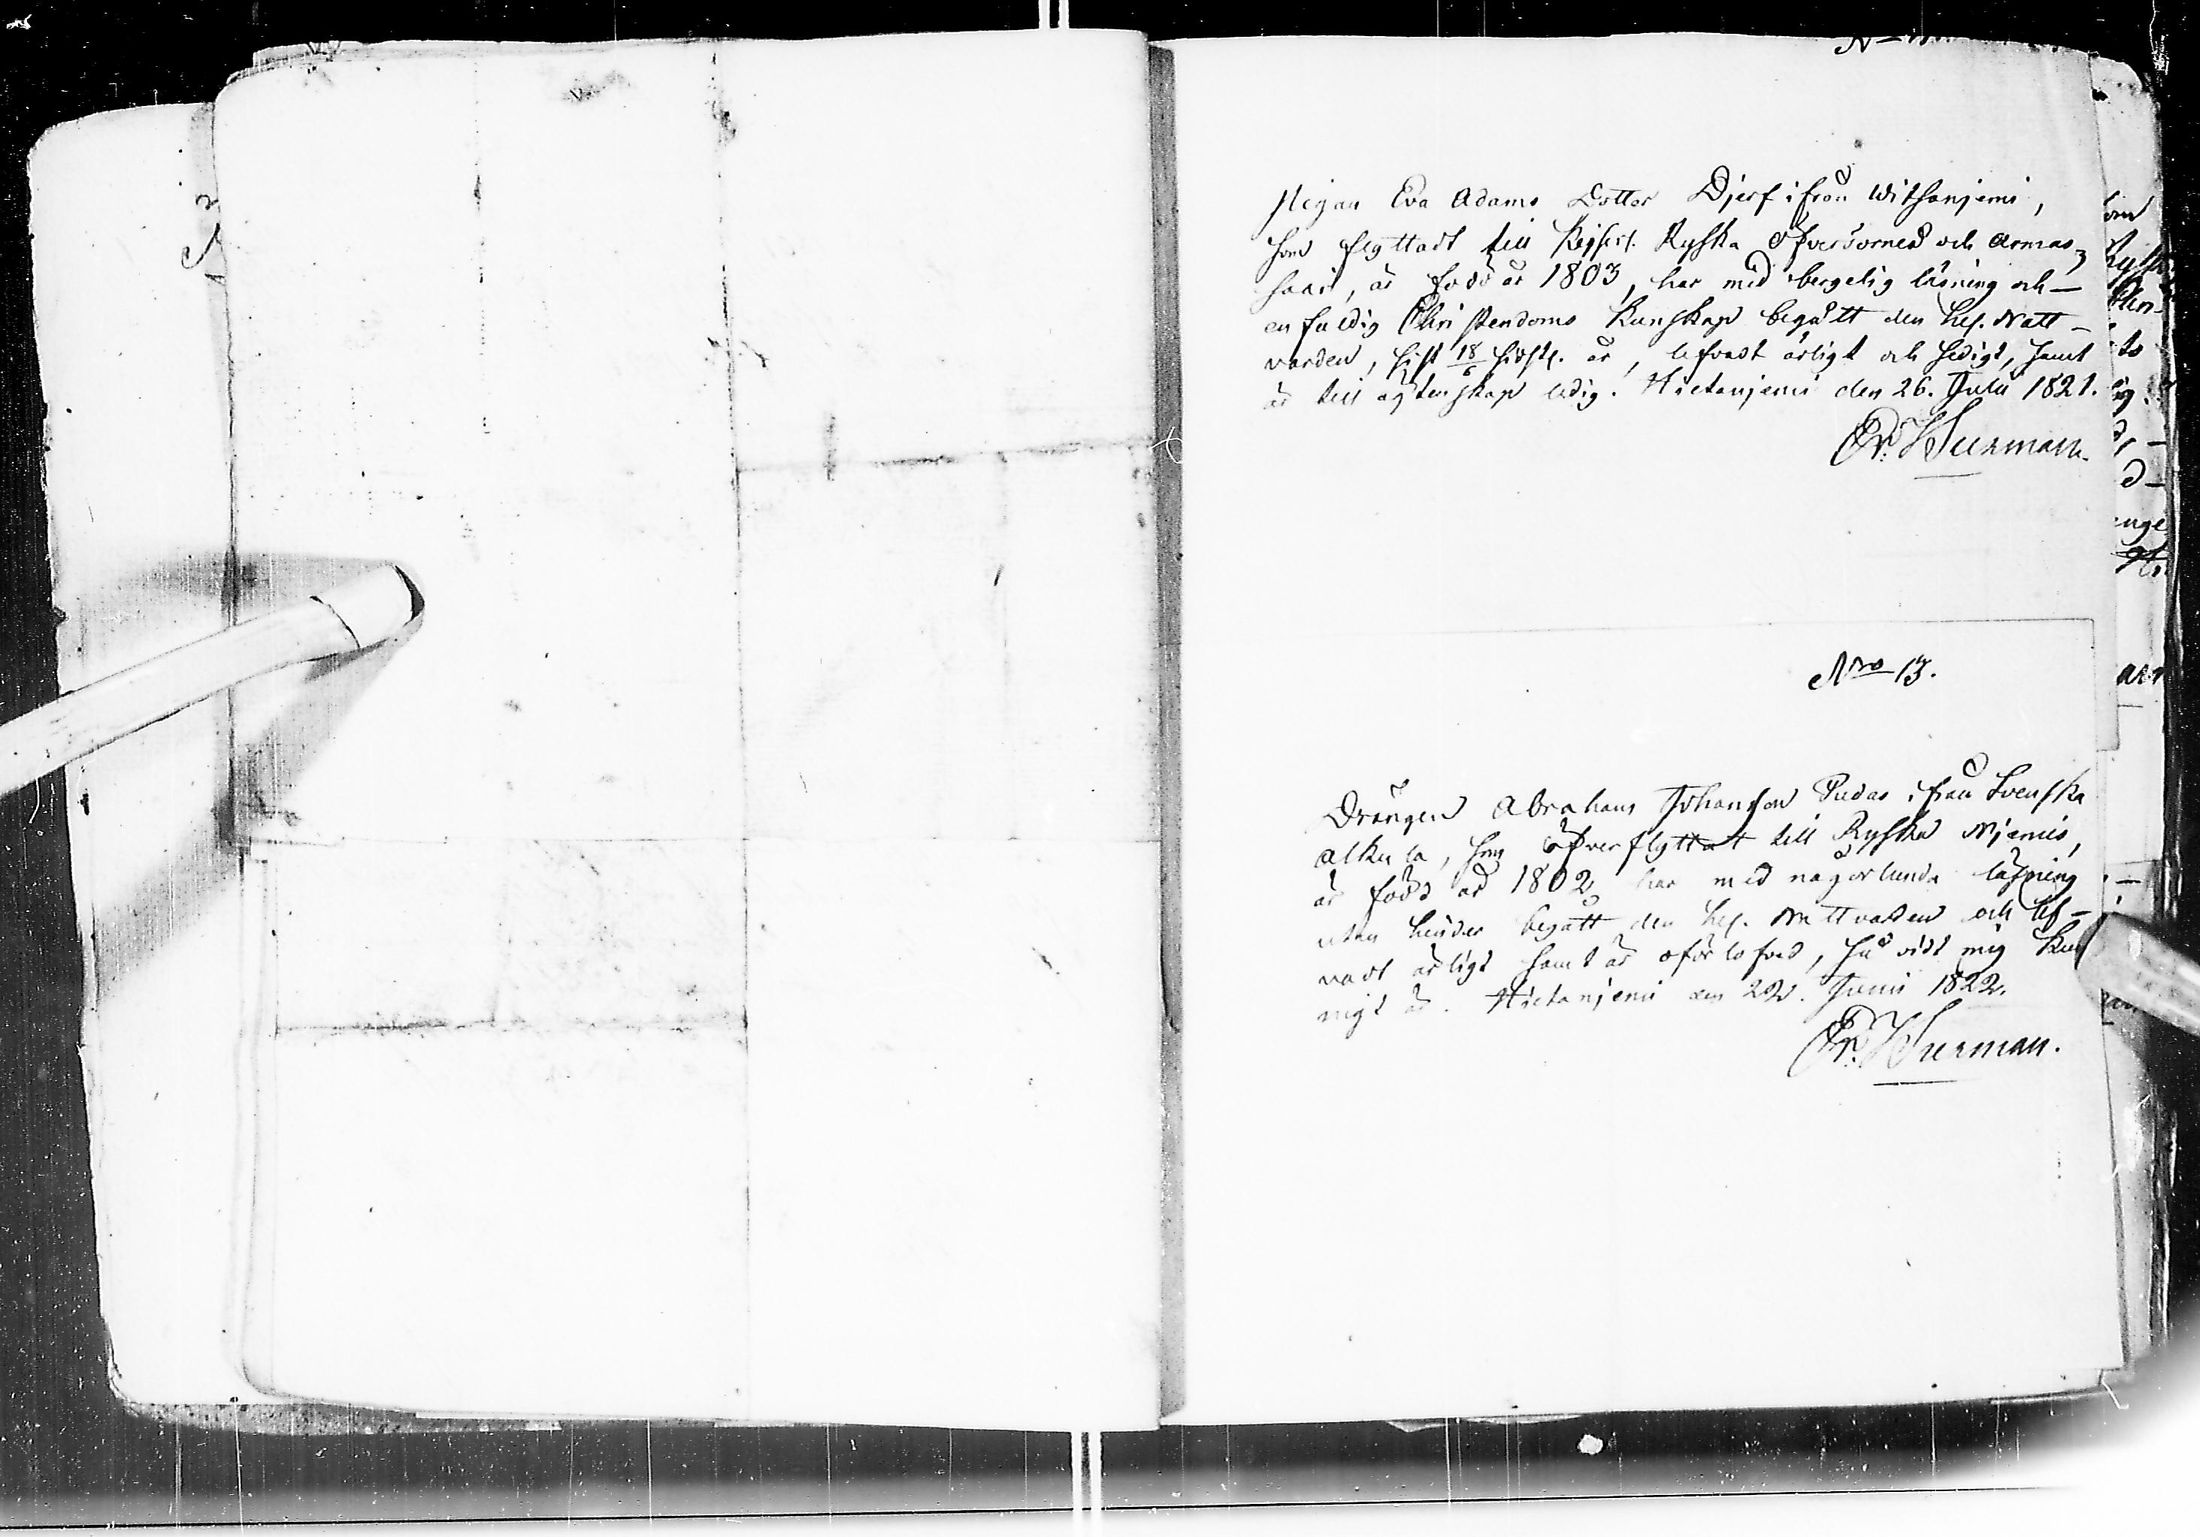 Pigan Eva Adams Dotter Djerf ifrån Witsanjemi,
som flyttadt till Kejserl. Ryska Öfvertorneå och Armas-
saari, är född år 1803, har med bergelig läsning och
enfaldig Christendoms Kunskap begått den hel. Natt-
varden, sist 18/6 sidstl. år, lefvadt ärligt och sedigt, samt
är till ägtenskap ledig. Hietanjemi den 26. Julii 1821.
Er. Wurman.
Nro 13.
Drängen Abraham Johansson Pudas ifrån Svenska
Alkula, som öfverflyttat till Ryska Njemis,
är född år 1802, har med någorlunda läsning
utan hinder begått den hel. Nattvarden och lef-
vadt ärligt samt är oförlofvad, så vidt mig kun
nigt är. Hietanjemi den 22. Junii 1822.
Er. Wurman.